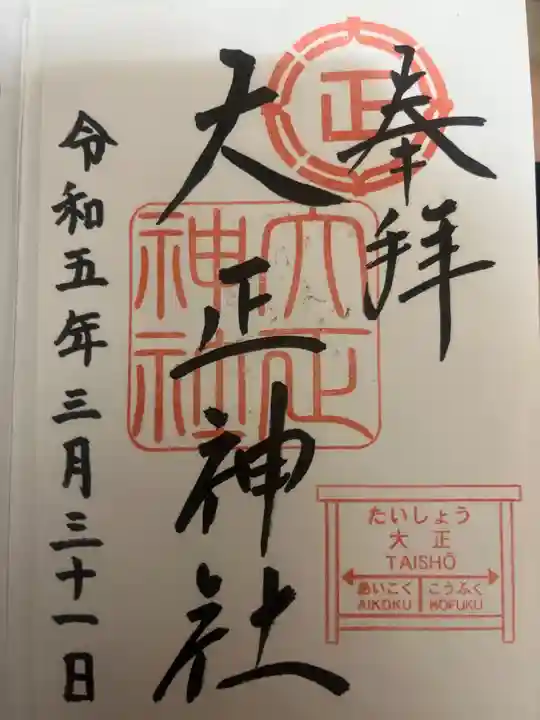 奉拝
正
大正神社
大正神社
令和五年三月三十一日
たいしょう
大正
TAISHŌ
あいこく こうふく
AIKOKU KOFUKU